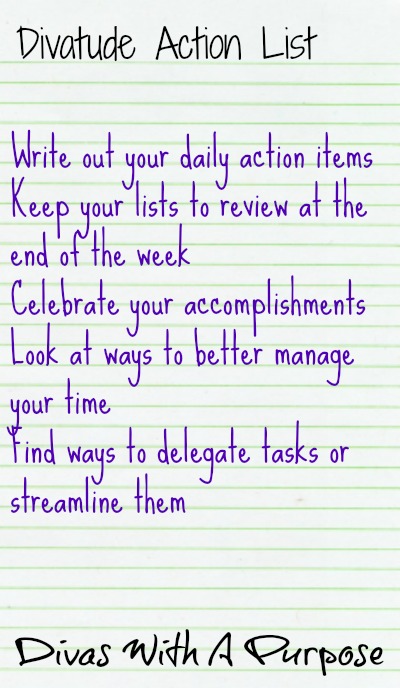 Divatude Action List
Write out your daily action items
Keep your lists to review at the
end of the week
Celebrate your accomplishments
Look at ways to better manage
your time
Find ways to delegate tasks or
streamline them
Divas With A Purpose